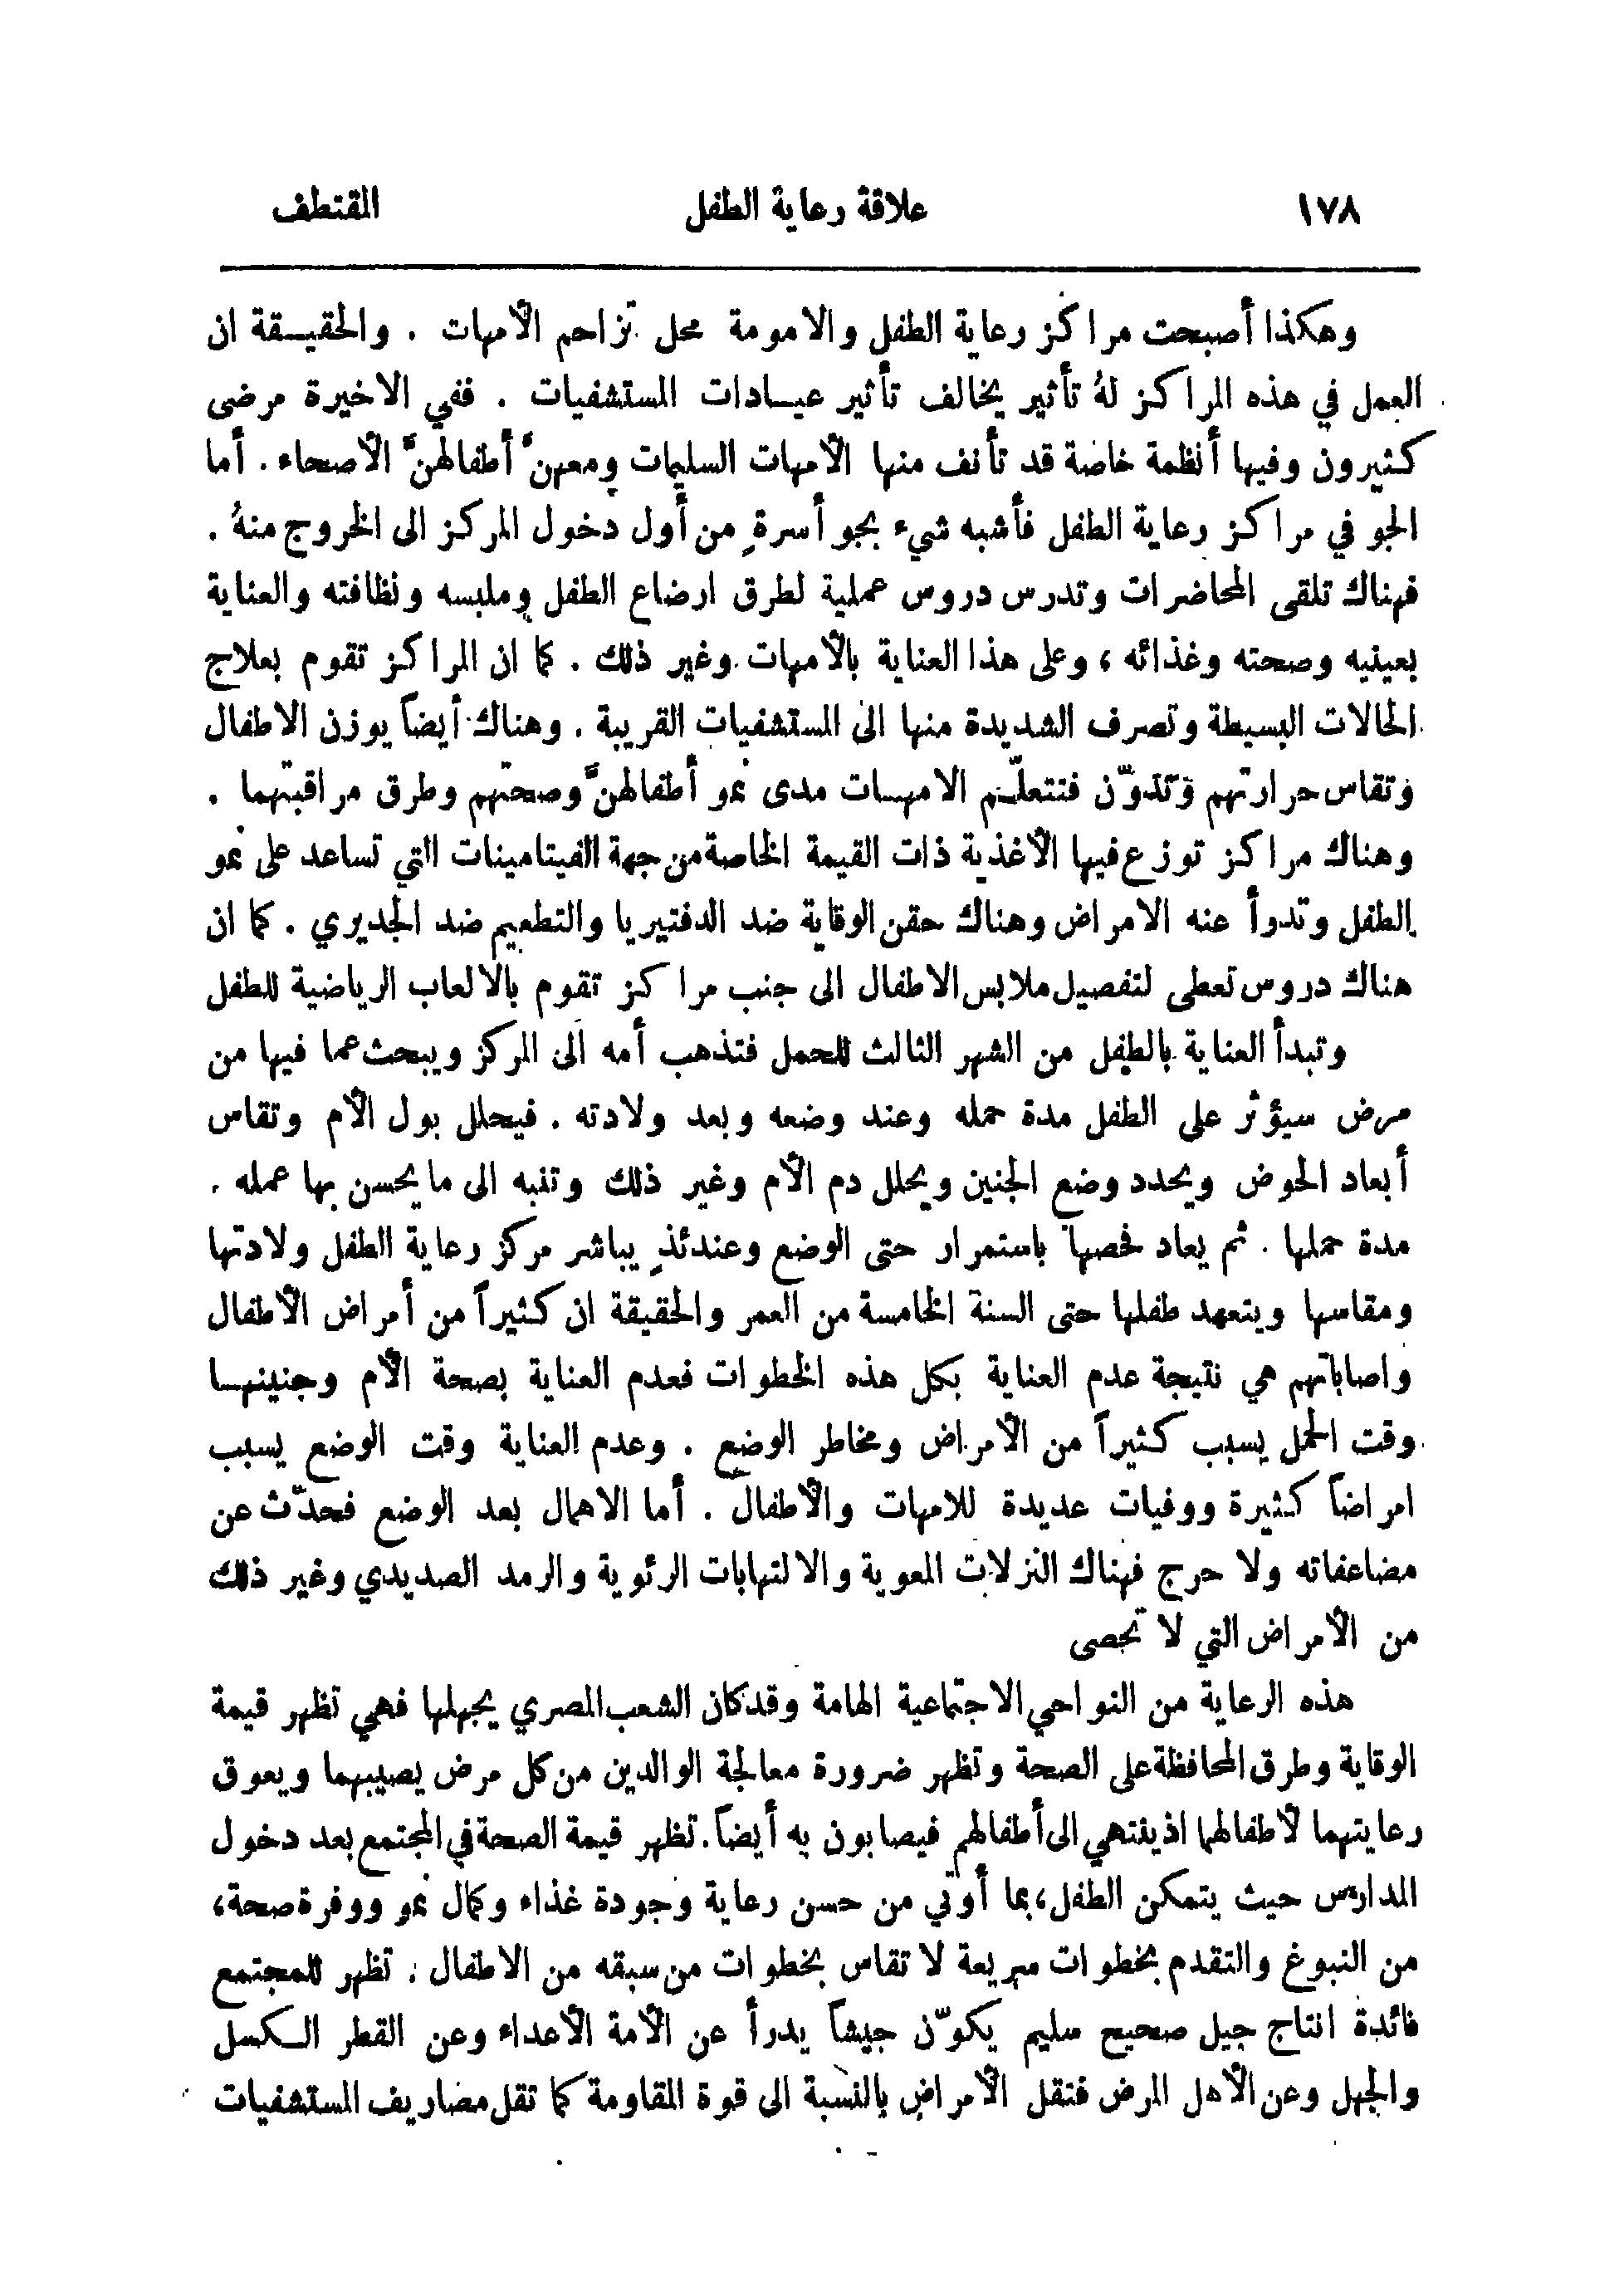 ١٧٨ علاقة رعاية الطفل المقتطف
وهكذا أصبحت مراكز رعاية الطفل والامومة محل تزاحم الأمهات . والحقيقة ان
العمل في هذه المراكز لهُ تأثير يخالف تأثير عيادات المستشفيات . ففي الاخيرة مرضى
كثيرون وفيها أنظمة خاصة قد تأنف منها الأمهات السليمات ومعهنَّ أطفالهنَّ الأصحاء . أما
الجو في مراكز رعاية الطفل فأشبه شيء بجو أسرةٍ من أول دخول المركز الى الخروج منهُ .
فهناك تلقى المحاضرات وتدرس دروس عملية لطرق ارضاع الطفل وملبسه ونظافته والعناية
بعينيه وصحته وغذائه ، وعلى هذا العناية بالأمهات وغير ذلك . كما ان المراكز تقوم بعلاج
الحالات البسيطة وتصرف الشديدة منها الى المستشفيات القريبة . وهناك أيضاً يوزن الاطفال
وتقاس حرارتهم وتدوّن فتتعلّم الامهات مدى نمو أطفالهنَّ وصحتهم وطرق مراقبتهما .
وهناك مراكز توزع فيها الأغذية ذات القيمة الخاصة من جهة الفيتامينات التي تساعد على نمو
الطفل وتدرأ عنه الامراض وهناك حقن الوقاية ضد الدفتيريا والتطعيم ضد الجديري . كما ان
هناك دروس تعطى لتفصيل ملابس الاطفال الى جنب مراكز تقوم بالالعاب الرياضية للطفل
وتبدأ العناية بالطفل من الشهر الثالث للحمل فتذهب أمه الى المركز ويبحث عما فيها من
مرض سيؤثر على الطفل مدة حمله وعند وضعه وبعد ولادته . فيحلل بول الأم وتقاس
أبعاد الحوض ويحدد وضع الجنين ويحلل دم الأم وغير ذلك وتنبه الى ما يحسن بها عمله .
مدة حملها . ثم يعاد فحصها باستمرار حتى الوضع وعندئذٍ يباشر مركز رعاية الطفل ولادتها
ومقاسها ويتعهد طفلها حتى السنة الخامسة من العمر والحقيقة ان كثيراً من أمراض الأطفال
واصاباتهم هي نتيجة عدم العناية بكل هذه الخطوات فعدم العناية بصحة الأم وجنينها
وقت الحمل يسبب كثيراً من الأمراض ومخاطر الوضع . وعدم العناية وقت الوضع يسبب
امراضاً كثيرة ووفيات عديدة للامهات والأطفال . أما الاهمال بعد الوضع فحدّث عن
مضاعفاته ولا حرج فهناك النزلات المعوية والالتهابات الرئوية والرمد الصديدي وغير ذلك
من الأمراض التي لا تحصى
هذه الرعاية من النواحي الاجتماعية الهامة وقد كان الشعب المصري يجهلها فهي تظهر قيمة
الوقاية وطرق المحافظة على الصحة وتظهر ضرورة معالجة الوالدين من كل مرض يصيبهما ويعوق
رعايتهما لأطفالهما اذ ينتهي الى أطفالهم فيصابون به أيضاً. تظهر قيمة الصحة في المجتمع بعد دخول
المدارس حيث يتمكن الطفل، بما أوتي من حسن رعاية وجودة غذاء وكمال نمو ووفرة صحة،
من النبوغ والتقدم بخطوات سريعة لا تقاس بخطوات من سبقه من الاطفال . تظهر للمجتمع
فائدة انتاج جيل صحيح سليم يكوّن جيشاً يدرأ عن الأمة الأعداء وعن القطر الكسل
والجهل وعن الأهل المرض فتقل الأمراض بالنسبة الى قوة المقاومة كما تقل مصاريف المستشفيات